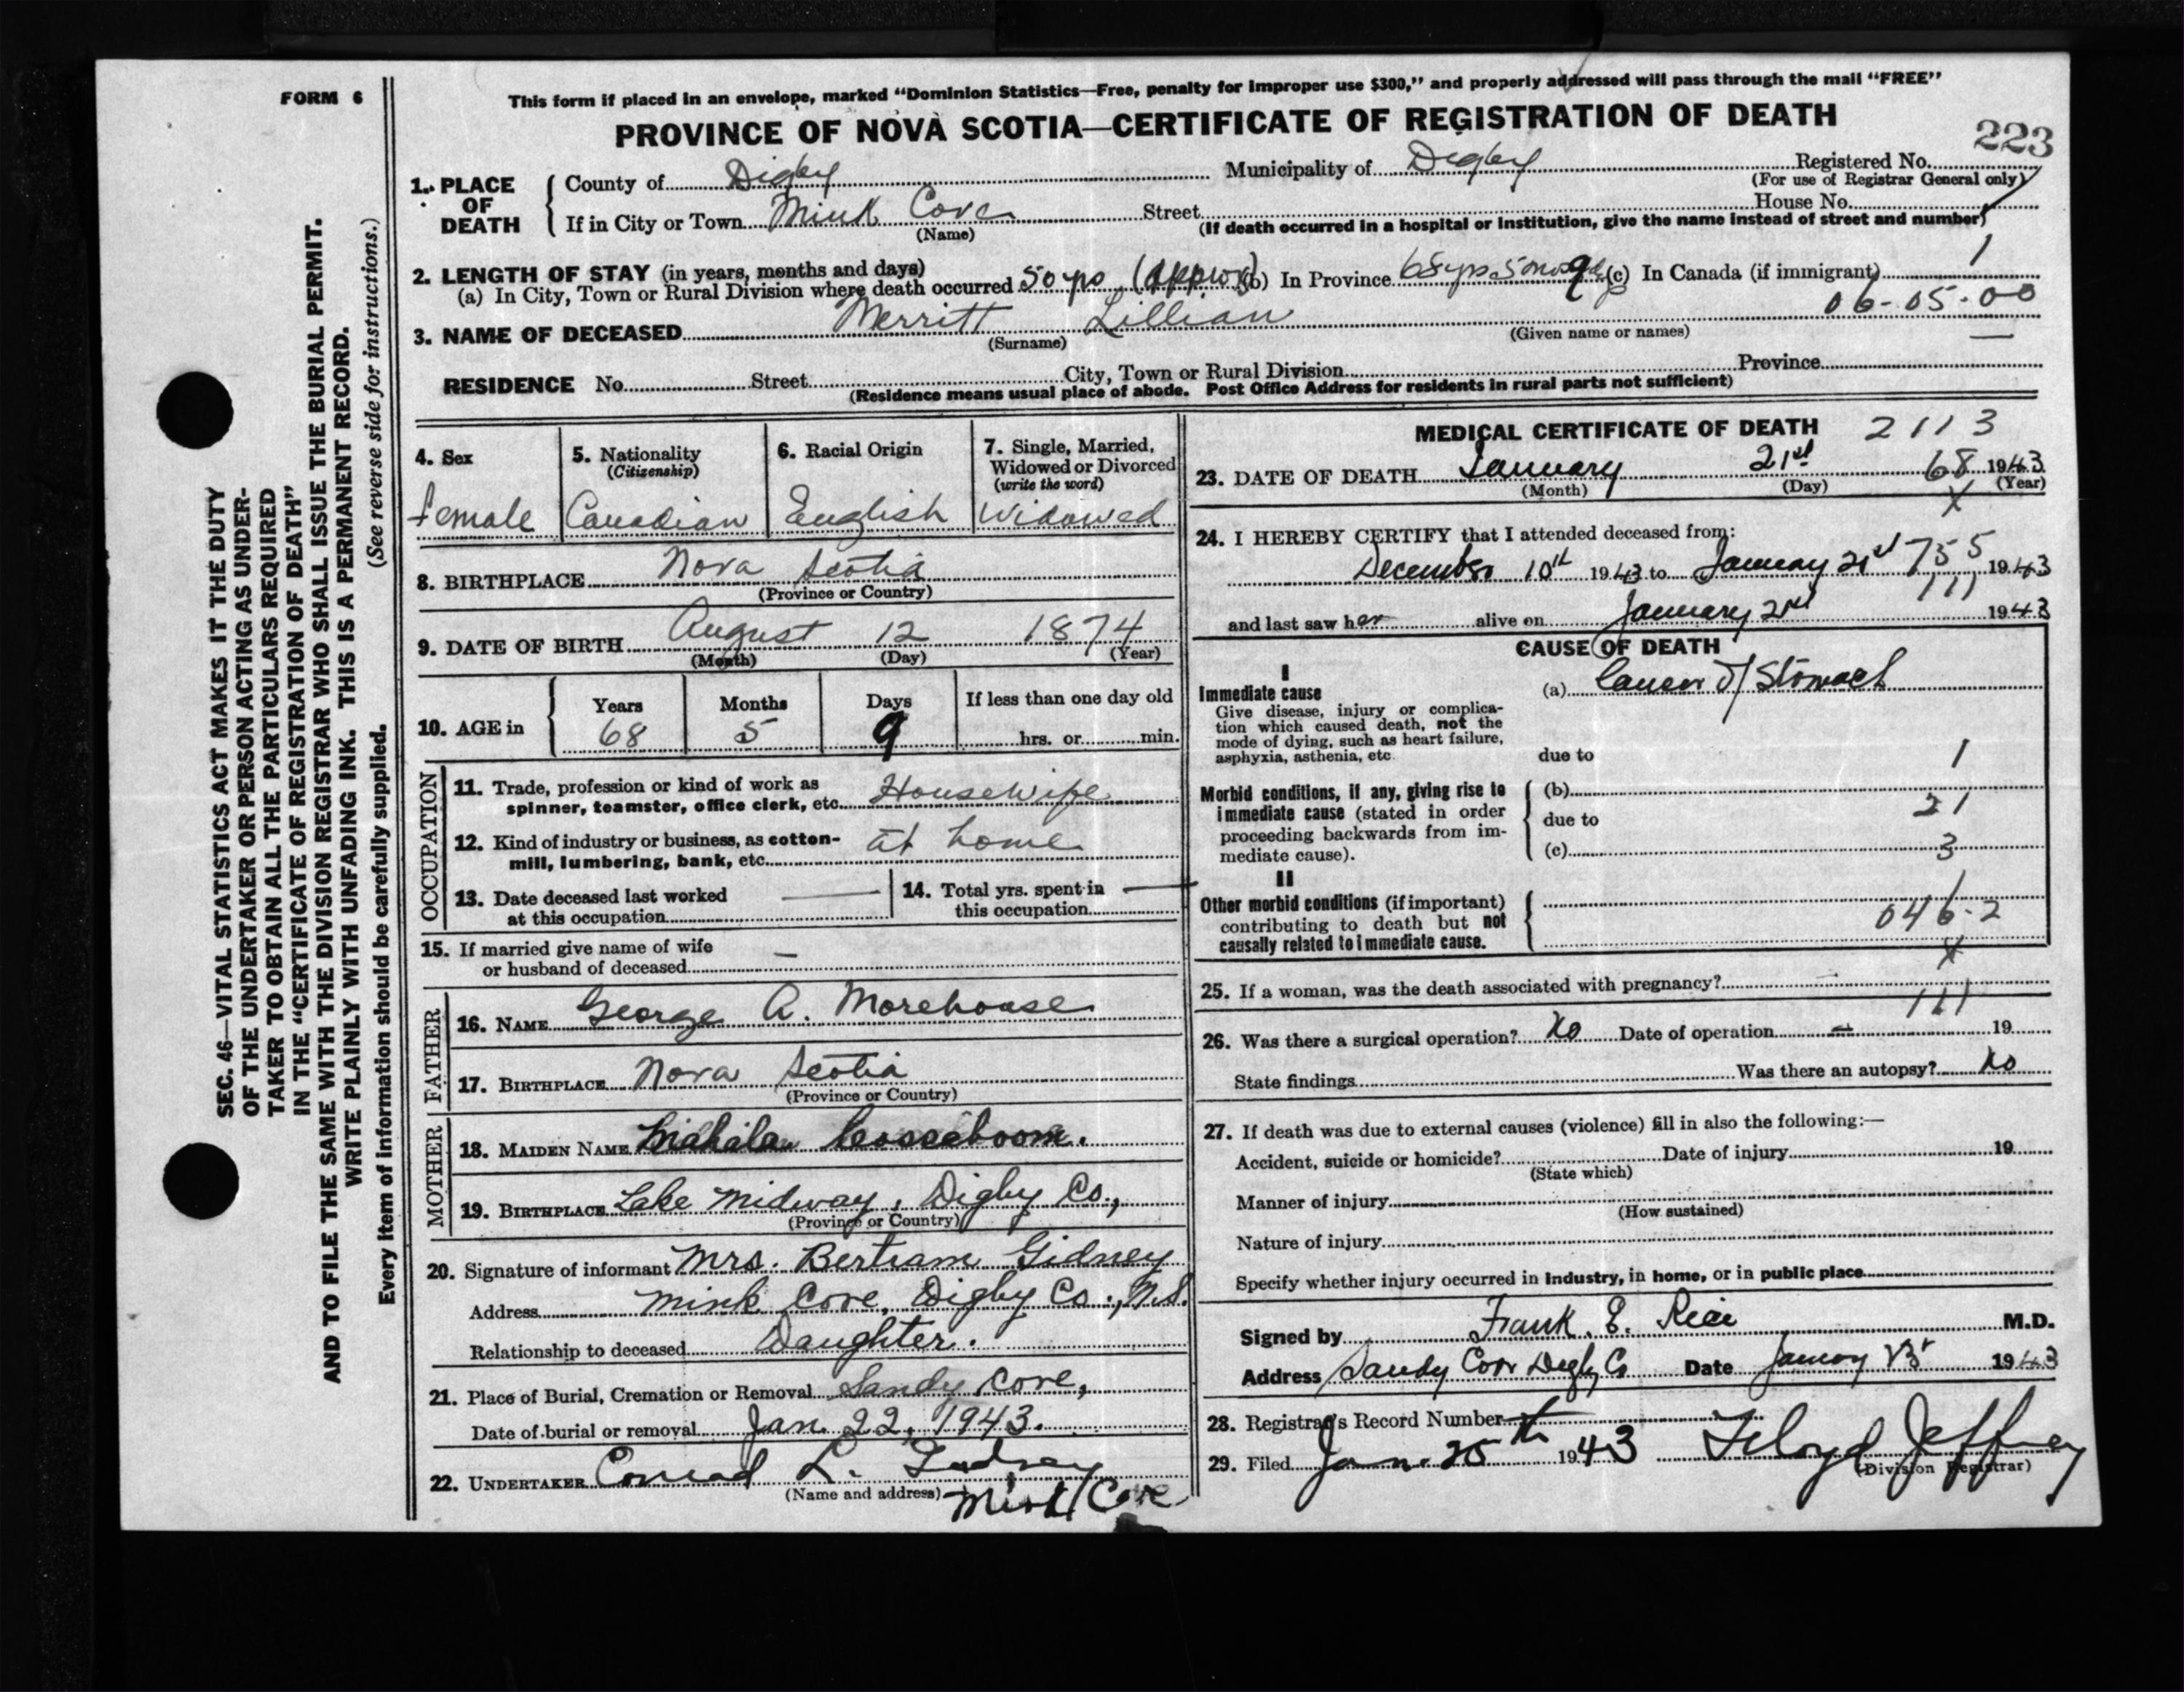 FORM 6
This form if placed in an envelope, marked “Dominion Statistics—Free, penalty for improper use $300,” and properly addressed will pass through the mail “FREE”
PROVINCE OF NOVA SCOTIA—CERTIFICATE OF REGISTRATION OF DEATH
223
1. PLACE OF DEATH
County of Digby Municipality of Digby Registered No.
(For use of Registrar General only)
If in City or Town Mink Cove Street House No.
(Name) (If death occurred in a hospital or institution, give the name instead of street and number)
2. LENGTH OF STAY (in years, months and days)
(a) In City, Town or Rural Division where death occurred 50 yrs (approx) (b) In Province 68 yrs. 5 mos 9 (c) In Canada (if immigrant) 1
06-05-00
3. NAME OF DECEASED Merritt Lillian
(Surname) (Given name or names)
RESIDENCE No. Street City, Town or Rural Division Province
(Residence means usual place of abode. Post Office Address for residents in rural parts not sufficient)
4. Sex
female
5. Nationality
(Citizenship)
Canadian
6. Racial Origin
English
7. Single, Married,
Widowed or Divorced
(write the word)
Widowed
8. BIRTHPLACE Nova Scotia
(Province or Country)
9. DATE OF BIRTH August 12 1874
(Month) (Day) (Year)
10. AGE in
Years Months Days If less than one day old
68 5 9 hrs. or min.
OCCUPATION
11. Trade, profession or kind of work as
spinner, teamster, office clerk, etc. Housewife
12. Kind of industry or business, as cotton-
mill, lumbering, bank, etc. at home
13. Date deceased last worked
at this occupation —
14. Total yrs. spent in
this occupation —
15. If married give name of wife
or husband of deceased —
FATHER
16. NAME George A. Morehouse
17. BIRTHPLACE Nova Scotia
(Province or Country)
MOTHER
18. MAIDEN NAME Mahala Cosseboom.
19. BIRTHPLACE Lake Midway, Digby Co.,
(Province or Country)
20. Signature of informant Mrs. Bertram Gidney
Address Mink Cove, Digby Co., N.S.
Relationship to deceased Daughter.
21. Place of Burial, Cremation or Removal Sandy Cove,
Date of burial or removal Jan. 22, 1943.
22. UNDERTAKER Conrad L. Gidney
(Name and address) Mink Cove
MEDICAL CERTIFICATE OF DEATH 2113
23. DATE OF DEATH January 21st 68 1943
(Month) (Day) (Year)
X
24. I HEREBY CERTIFY that I attended deceased from:
December 10th 1943 to January 21st 755 1943
111
and last saw her alive on January 21st 1943
CAUSE OF DEATH
I
Immediate cause
Give disease, injury or complica-
tion which caused death, not the
mode of dying, such as heart failure,
asphyxia, asthenia, etc
(a) Cancer of Stomach
due to 1
Morbid conditions, if any, giving rise to
immediate cause (stated in order
proceeding backwards from im-
mediate cause).
(b)
21
due to
(c) 3
II
Other morbid conditions (if important)
contributing to death but not
causally related to immediate cause.
046-2
X
25. If a woman, was the death associated with pregnancy?
111
26. Was there a surgical operation? No Date of operation — 19
State findings Was there an autopsy? No
27. If death was due to external causes (violence) fill in also the following:—
Accident, suicide or homicide? Date of injury 19
(State which)
Manner of injury
(How sustained)
Nature of injury
Specify whether injury occurred in industry, in home, or in public place
Signed by Frank. E. Rice M.D.
Address Sandy Cove Digby Co Date 1943
28. Registrar's Record Number
29. Filed Jan. 25th 1943 Floyd Jeffrey
(Division Registrar)
SEC. 46—VITAL STATISTICS ACT MAKES IT THE DUTY
OF THE UNDERTAKER OR PERSON ACTING AS UNDER-
TAKER TO OBTAIN ALL THE PARTICULARS REQUIRED
IN THE “CERTIFICATE OF REGISTRATION OF DEATH”
AND TO FILE THE SAME WITH THE DIVISION REGISTRAR WHO SHALL ISSUE THE BURIAL PERMIT.
WRITE PLAINLY WITH UNFADING INK. THIS IS A PERMANENT RECORD.
(See reverse side for instructions.)
Every item of information should be carefully supplied.